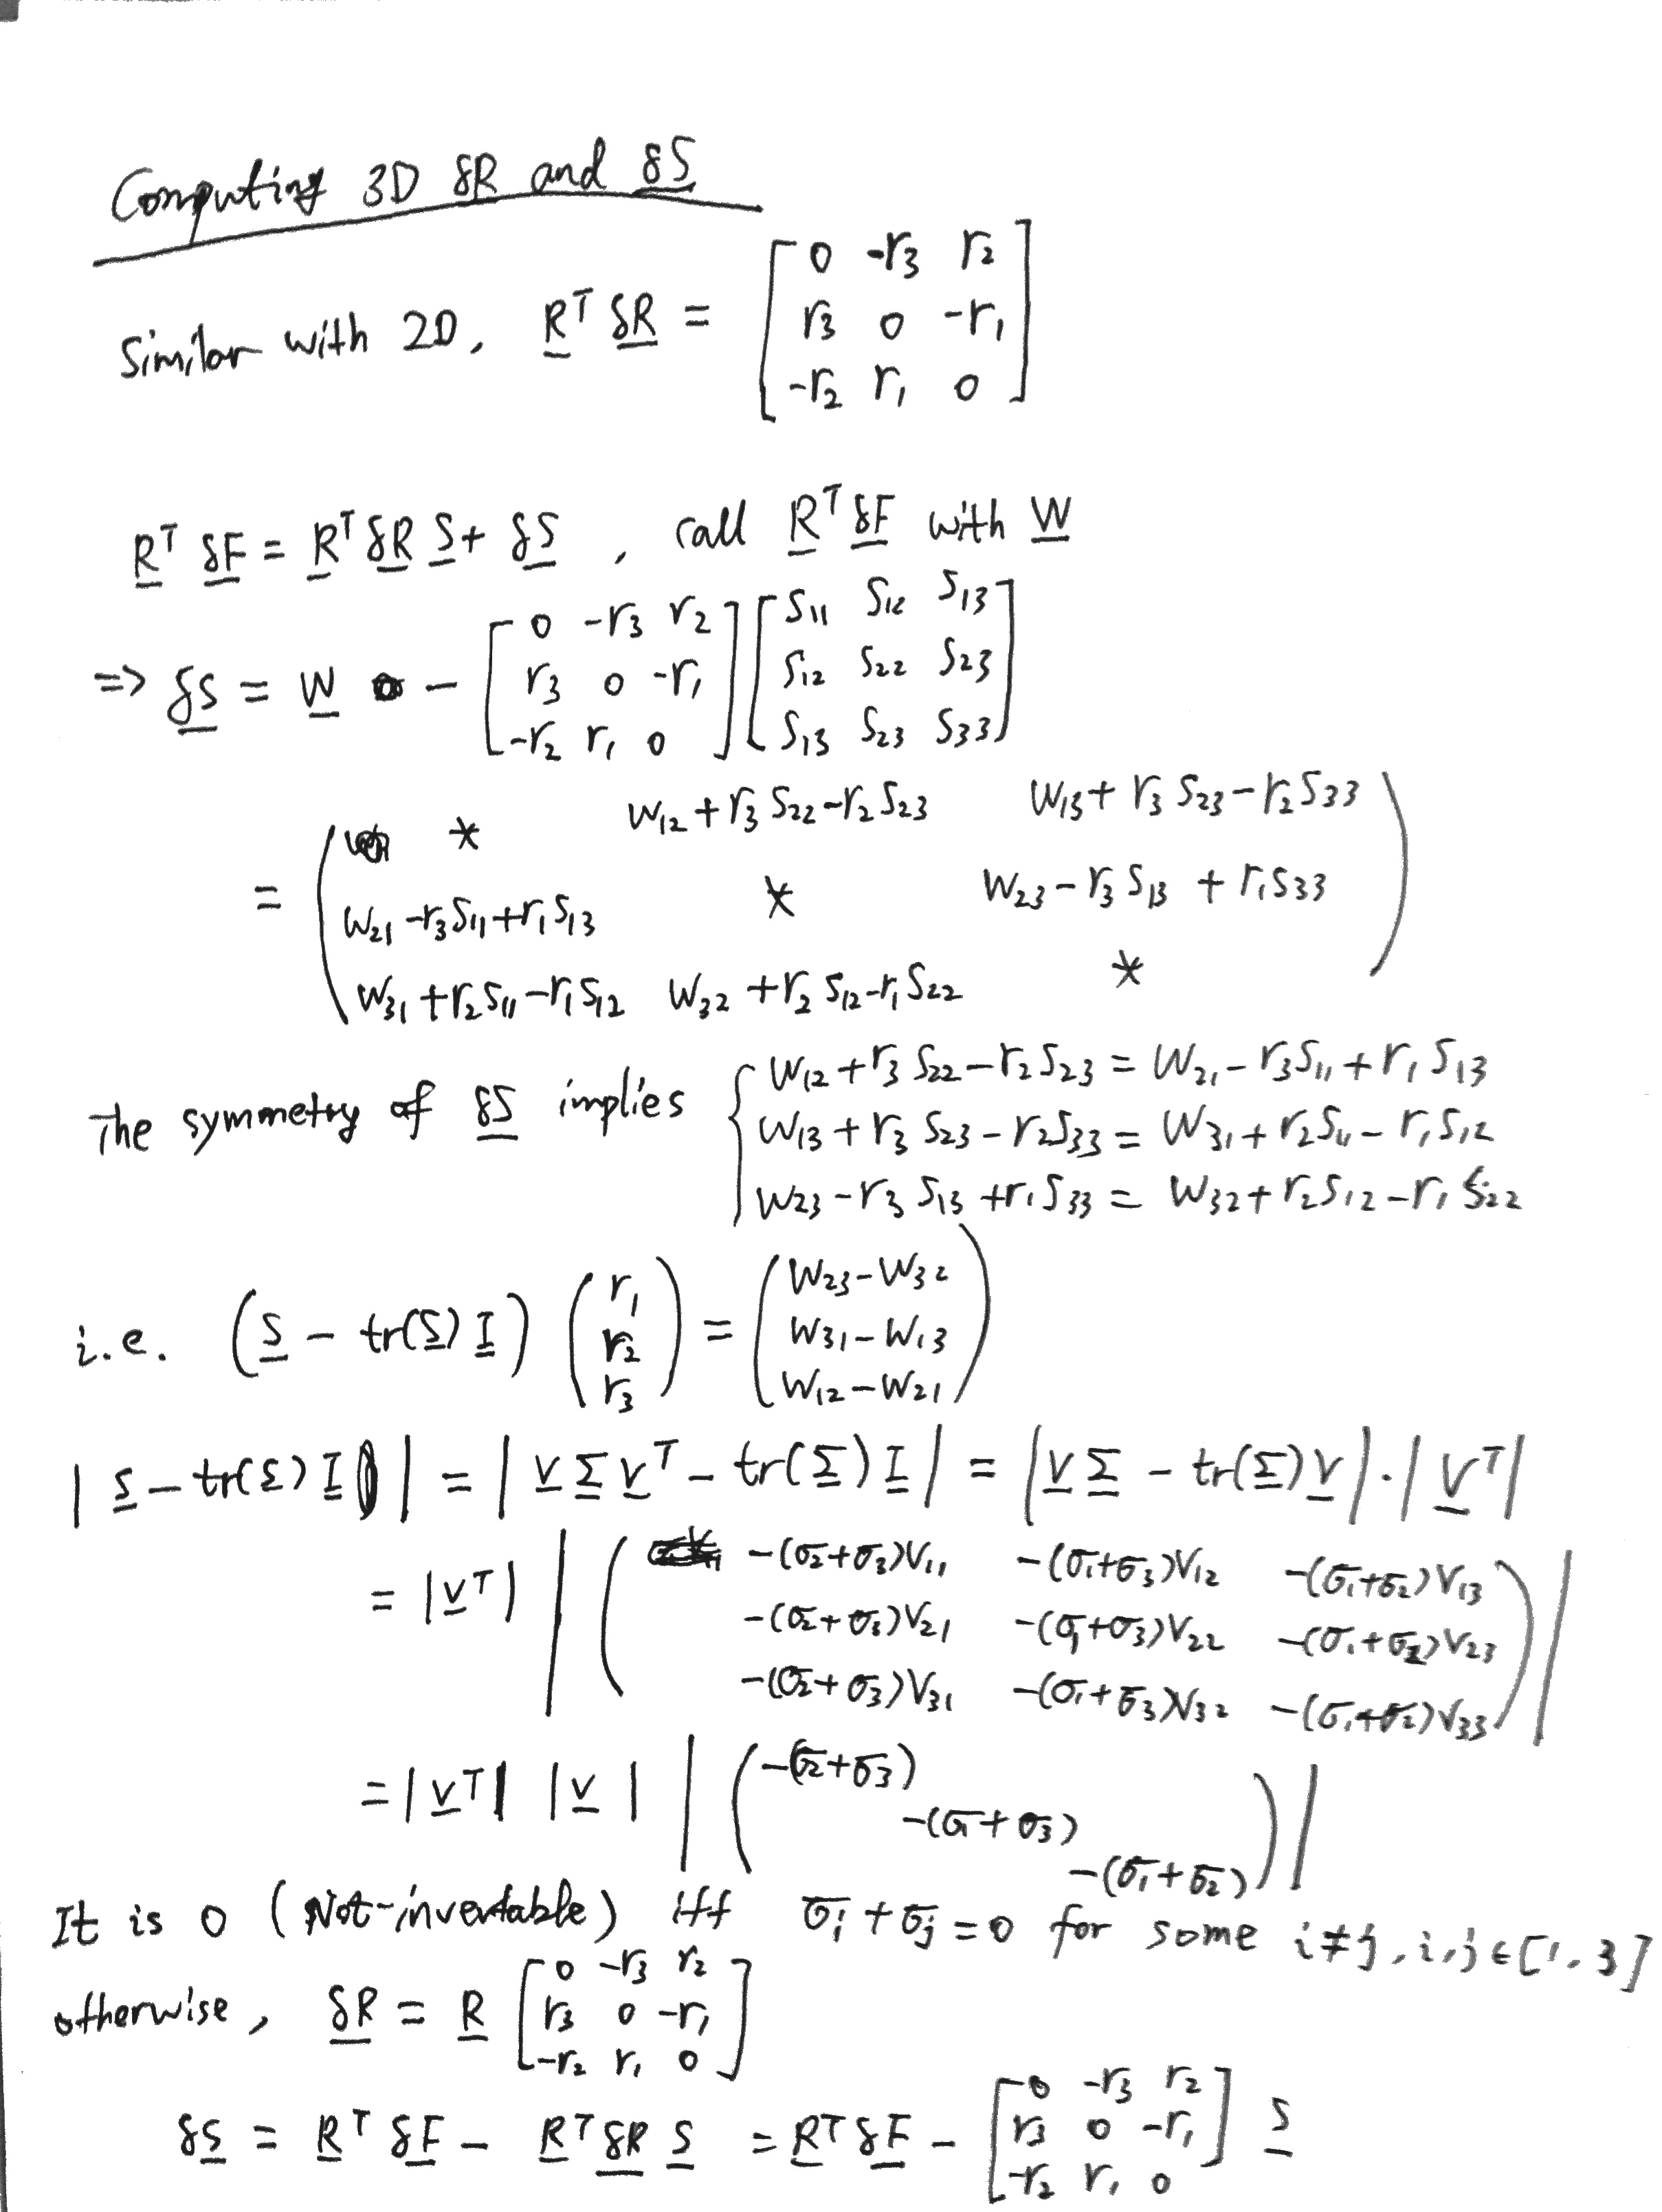 Computing 3D δR and δS
Similar with 2D, R^T δR = [ 0 -r3 r2
r3 0 -r1
-r2 r1 0 ]
R^T δF = R^T δR S + δS , call R^T δF with W
=> δS = W - [ 0 -r3 r2 ; r3 0 -r1 ; -r2 r1 0 ] [ S11 S12 S13 ; S12 S22 S23 ; S13 S23 S33 ]
= ( * W12+r3S22-r2S23 W13+r3S23-r2S33
W21-r3S11+r1S13 * W23-r3S13+r1S33
W31+r2S11-r1S12 W32+r2S12-r1S22 * )
The symmetry of δS implies { W12+r3S22-r2S23 = W21-r3S11+r1S13
W13+r3S23-r2S33 = W31+r2S11-r1S12
W23-r3S13+r1S33 = W32+r2S12-r1S22
i.e. (S - tr(S) I) ( r1 ; r2 ; r3 ) = ( W23-W32 ; W31-W13 ; W12-W21 )
| S - tr(S) I | = | V Σ V^T - tr(Σ) I | = | V Σ - tr(Σ) V | · | V^T |
= |V^T| | ( -(σ2+σ3)V11 -(σ1+σ3)V12 -(σ1+σ2)V13
-(σ2+σ3)V21 -(σ1+σ3)V22 -(σ1+σ2)V23
-(σ2+σ3)V31 -(σ1+σ3)V32 -(σ1+σ2)V33 ) |
= |V^T| |V| | ( -(σ2+σ3)
-(σ1+σ3)
-(σ1+σ2) ) |
It is 0 (Not-invertable) iff σi + σj = 0 for some i≠j, i,j ∈ [1, 3]
otherwise, δR = R [ 0 -r3 r2 ; r3 0 -r1 ; -r2 r1 0 ]
δS = R^T δF - R^T δR S = R^T δF - [ 0 -r3 r2 ; r3 0 -r1 ; -r2 r1 0 ] S